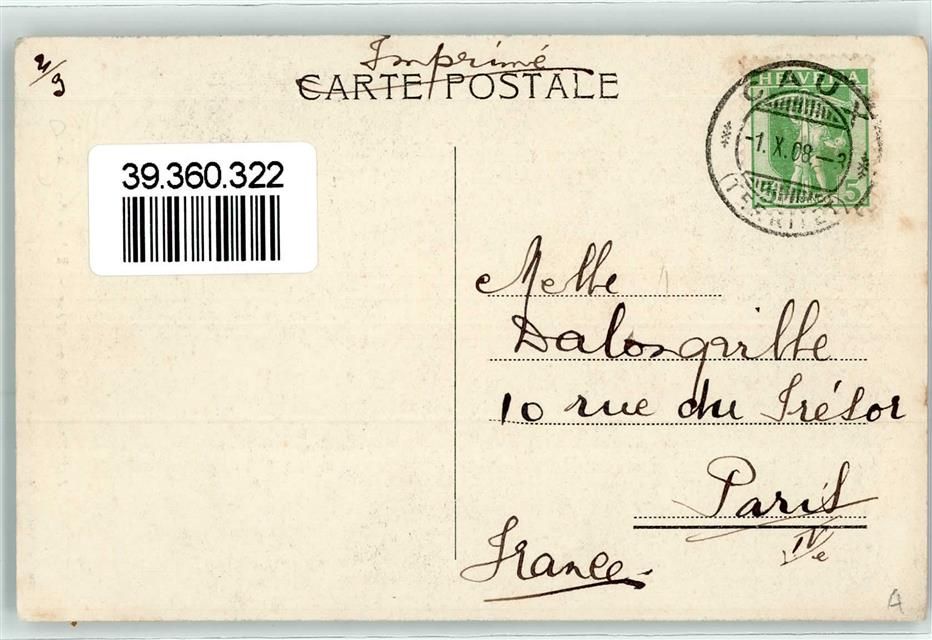 2/9
Imprimé
CARTE POSTALE
39.360.322
HELVETIA
5
CAUX
-1.X.08-3
(TERRITET)
Melle
Dalongeville
10 rue du Trésor
Paris
IVe
France.
A